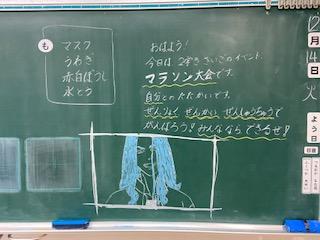 も
マスク
うわぎ
赤白ぼうし
水とう
おはよう!
今日は、2学き さいごのイベント、
マラソン大会です。
自分とのたたかいです。
ぜんりょく ぜんかい ぜんしゅうちゅうで
がんばろう!みんなならできるぜ!
12
月
14
日
火
よう日
日直